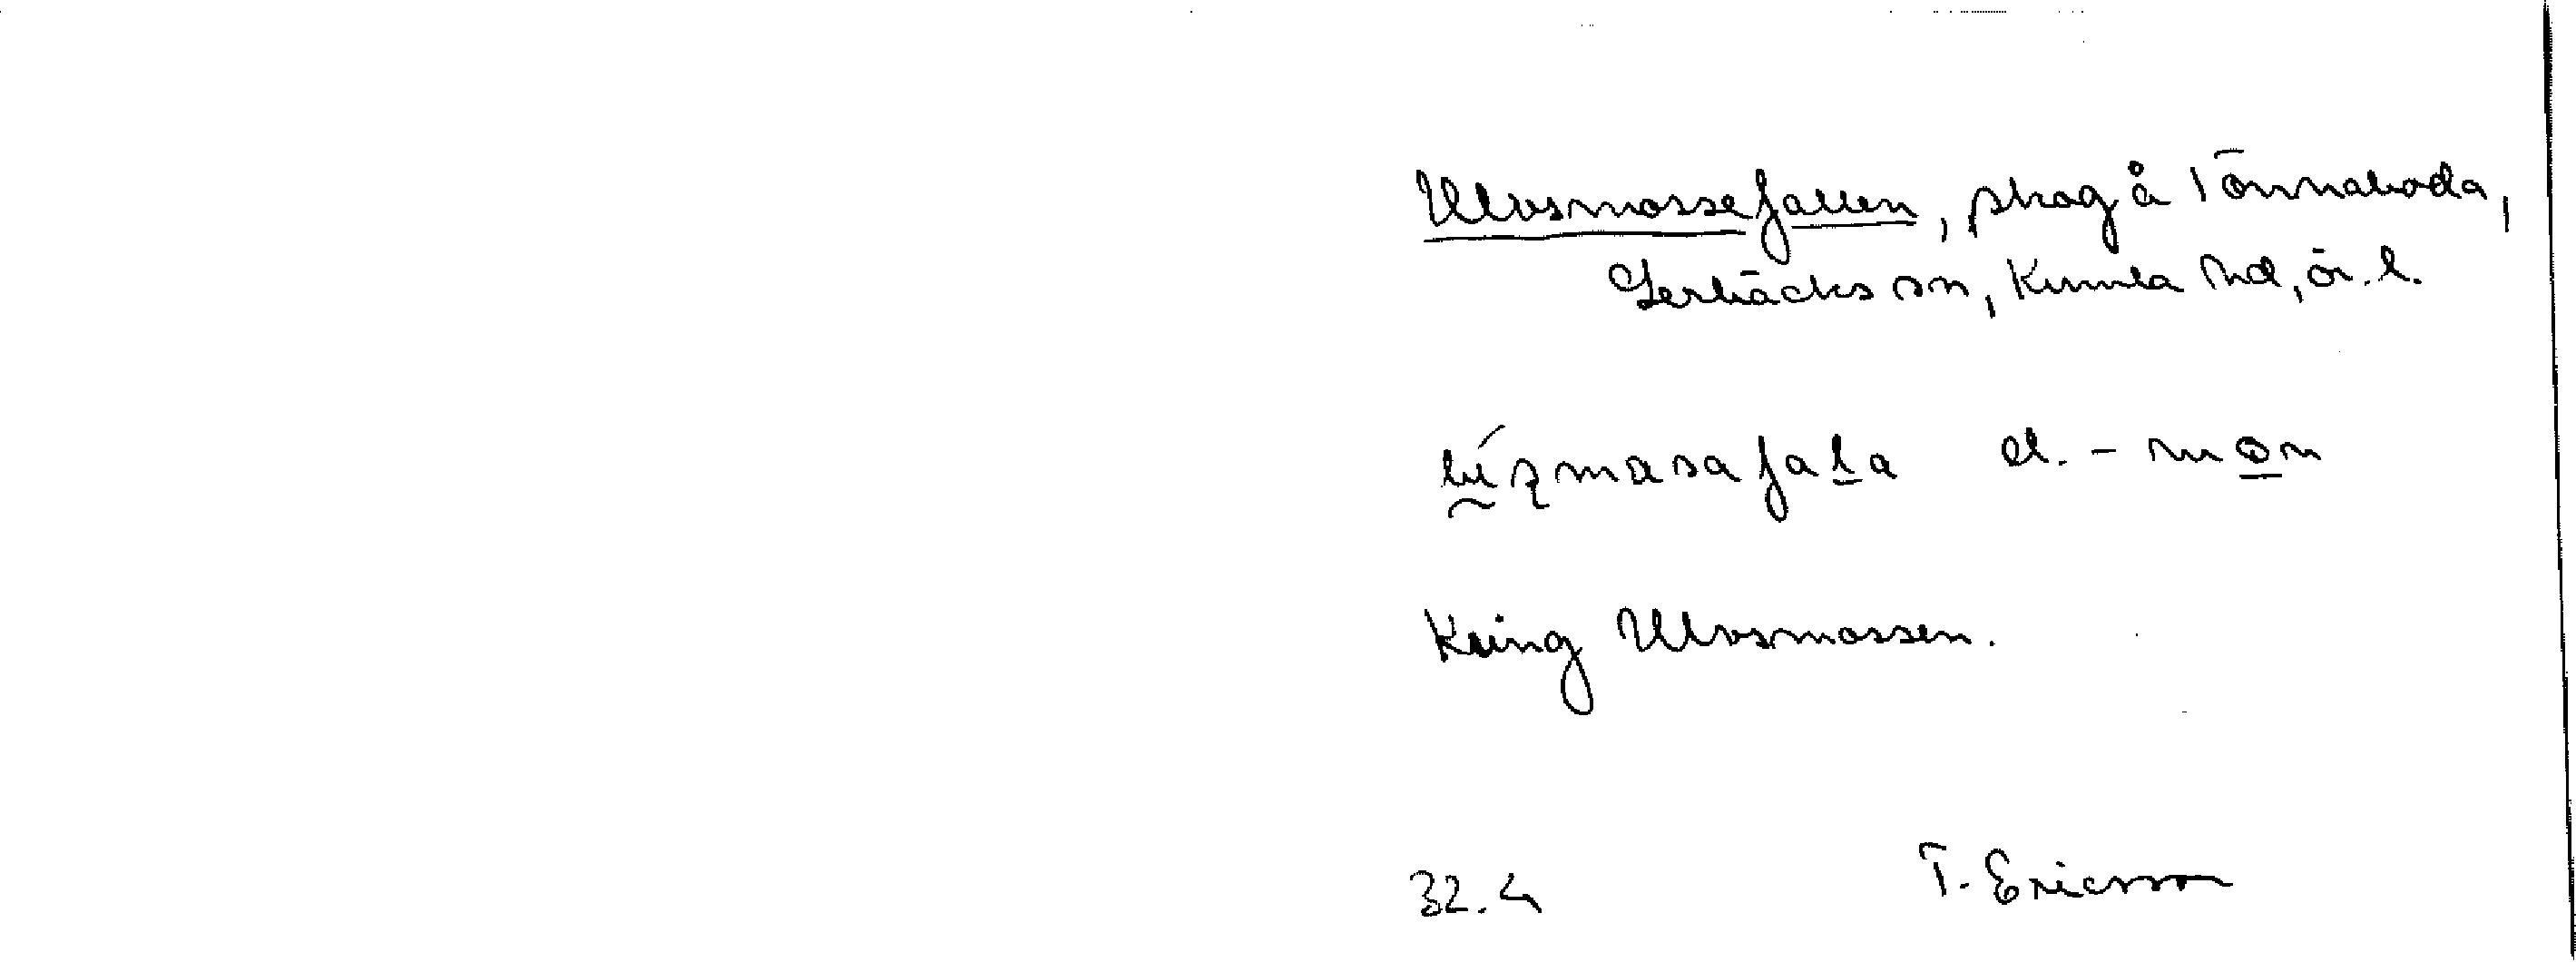 Ulvsmossefallen, skog å Tönnaboda,
Lerbäcks sn, Kumla hd, ör. l.
el. -
Kring Ulvsmossen.
32.4 T. Ericsson